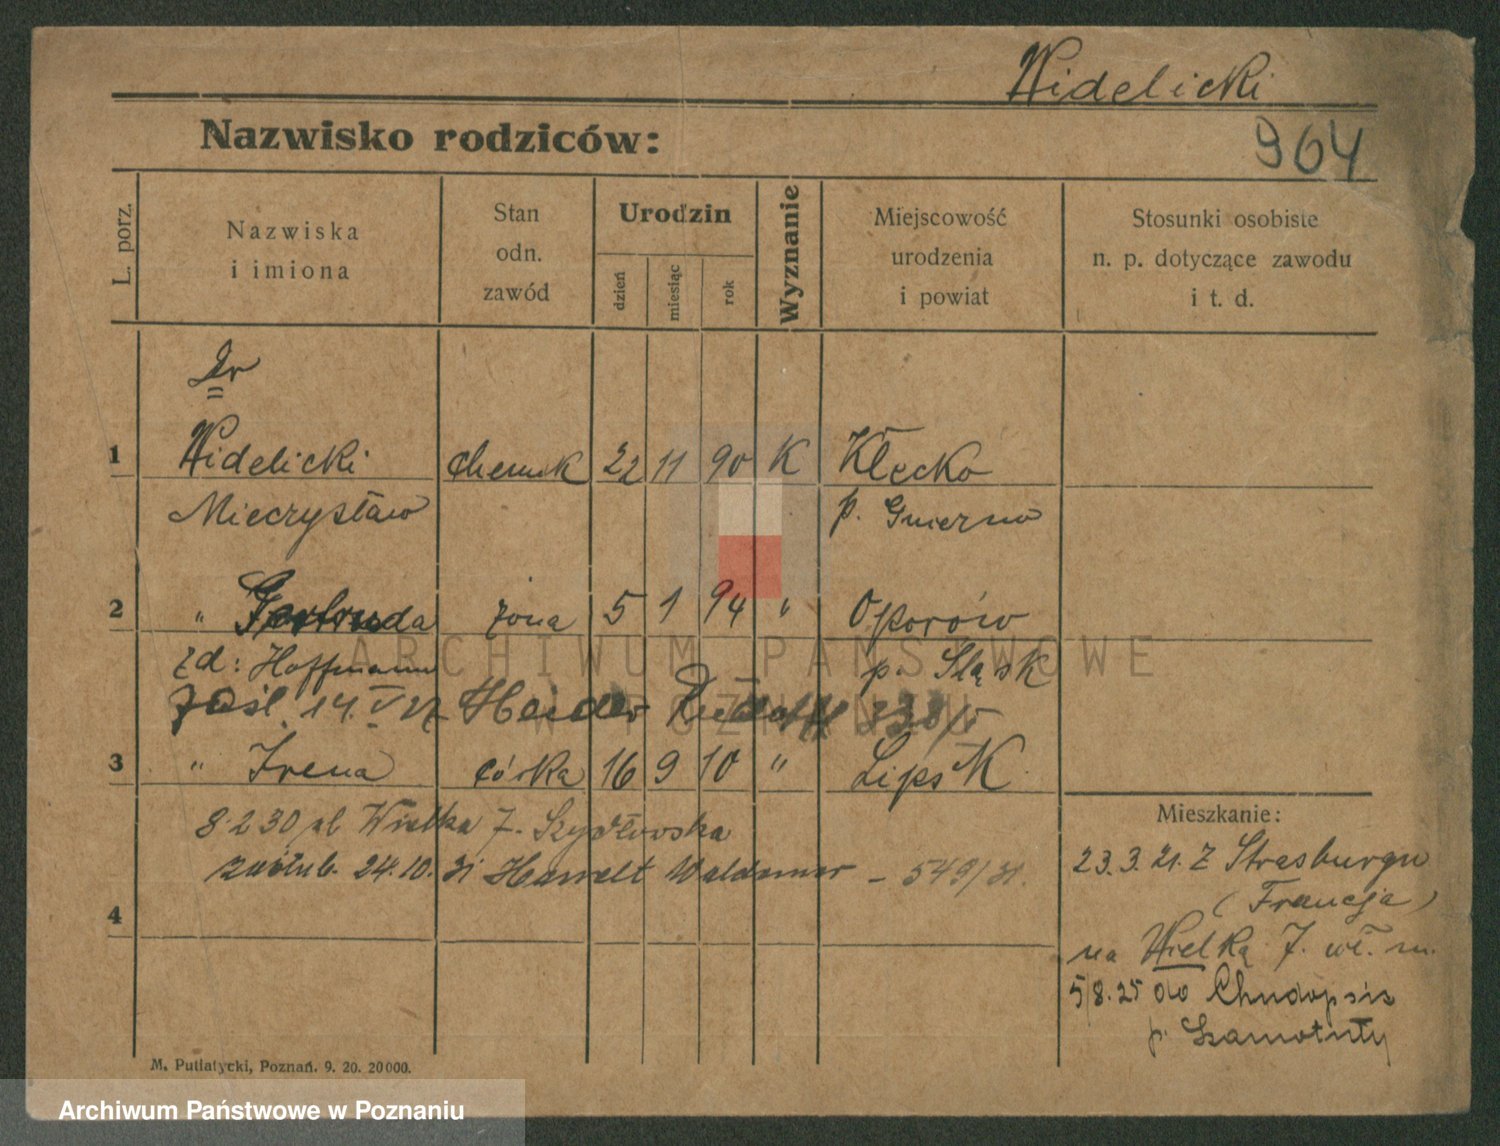 Widelicki
Nazwisko rodziców:
964
L. porz.
Nazwiska
i imiona
Stan
odn.
zawód
Urodzin
dzień
miesiąc
rok
Wyznanie
Miejscowość
urodzenia
i powiat
Stosunki osobiste
n. p. dotyczące zawodu
i t. d.
Dr
1 Widelicki chemik 22 11 90 K Kłecko
Mieczysław p. Gniezno
2 " Gertruda żona 5 1 94 " Oporów
zd: Hoffmann p. Śląsk
14. V 27 Heider 838/5
3 " Irena córka 16 9 10 " Lipsk
8.2.30 Wielka 7. Szydłowska
zaślub. 24.10.31 Waldemar - 549/31.
4
Mieszkanie:
23.3.21. z Strasburgu
(Francja)
na Wielką 7. wł. m.
5/8.25 do Chudopsic
p. Szamotuły
M. Putiatycki, Poznań. 9. 20. 20000.
ARCHIWUM PAŃSTWOWE
W POZNANIU
Archiwum Państwowe w Poznaniu